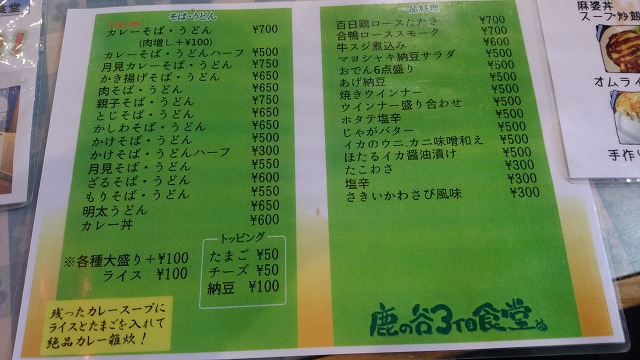 そば・うどん
カレーそば・うどん ¥700
(肉増し+¥100)
カレーそば・うどんハーフ ¥500
月見カレーそば・うどん ¥750
かき揚げそば・うどん ¥650
肉そば・うどん ¥650
親子そば・うどん ¥750
とじそば・うどん ¥650
かしわそば・うどん ¥600
かけそば・うどん ¥500
かけそば・うどんハーフ ¥300
月見そば・うどん ¥550
ざるそば・うどん ¥600
もりそば・うどん ¥550
明太うどん ¥650
カレー丼 ¥600
※各種大盛り+¥100
ライス ¥100
トッピング
たまご ¥50
チーズ ¥50
納豆 ¥100
残ったカレースープに
ライスとたまごを入れて
絶品カレー雑炊!
一品料理
百日鶏ロースたたき ¥700
合鴨ローススモーク ¥700
牛スジ煮込み ¥600
マヨシャキ納豆サラダ ¥500
おでん6点盛り ¥500
あげ納豆 ¥500
焼きウインナー ¥500
ウインナー盛り合わせ ¥500
ホタテ塩辛 ¥500
じゃがバター ¥500
イカのウニ,カニ味噌和え ¥500
ほたるイカ醤油漬け ¥500
たこわさ ¥300
塩辛 ¥300
さきいかわさび風味 ¥300
鹿の谷3丁目食堂
食堂
麻婆丼
スープ炒飯
オムライ
手作り